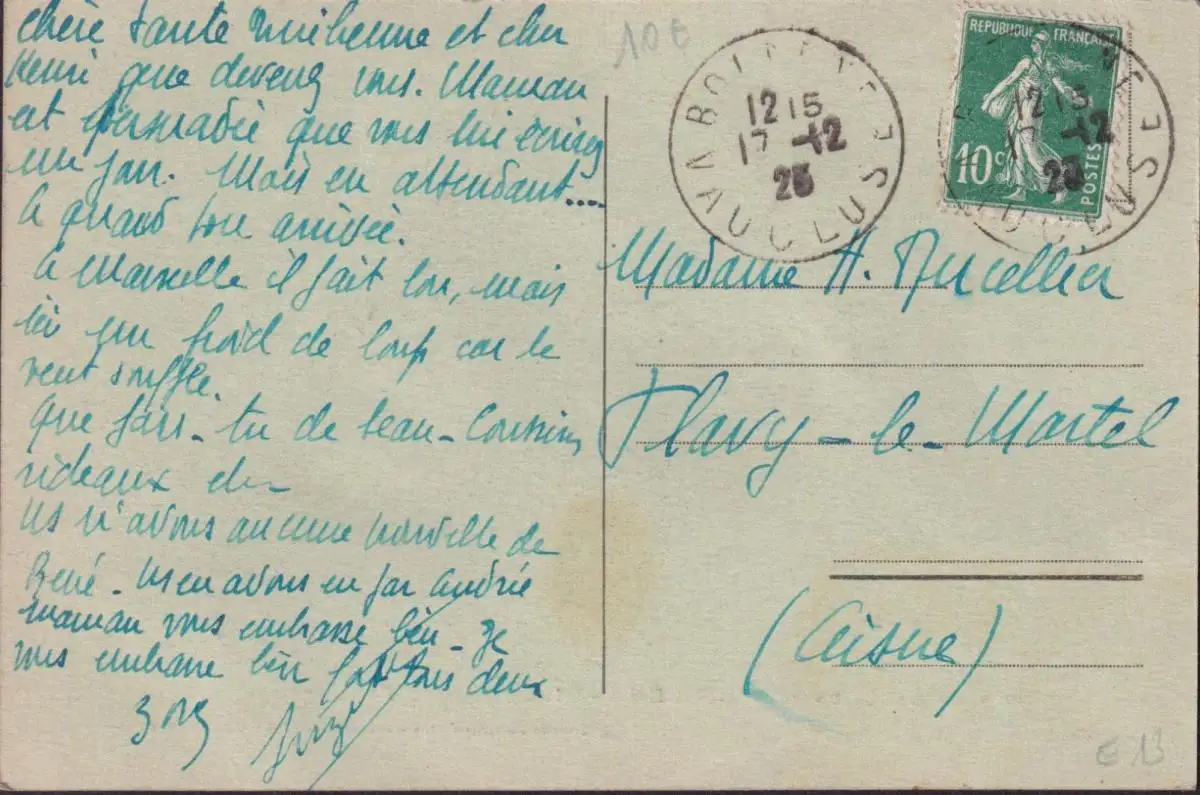 chère tante et cher
Henri que devenez vous. Maman
est persuadée que vous lui écrirez
un jour. Mais en attendant....
à quand ton arrivée.
à Marseille il fait bon, mais
ici un froid de loup car le
vent souffle.
Que fais-tu de beau - Coussins
rideaux etc
Ns n'avons aucune nouvelle de
René - Ns en avons eu par Andrée
maman vous embrasse bien - Je
vous embrasse bien fort tous deux
10 €
BOLLENE
VAUCLUSE
12 15
17 -12
REPUBLIQUE FRANÇAISE
10c
POSTES
12 15
-12
VAUCLUSE
Madame H.
Flavy-le-Martel
(Aisne)
€ 13